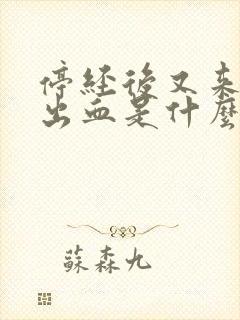 停经後又来
出血是什麼
蘇森九